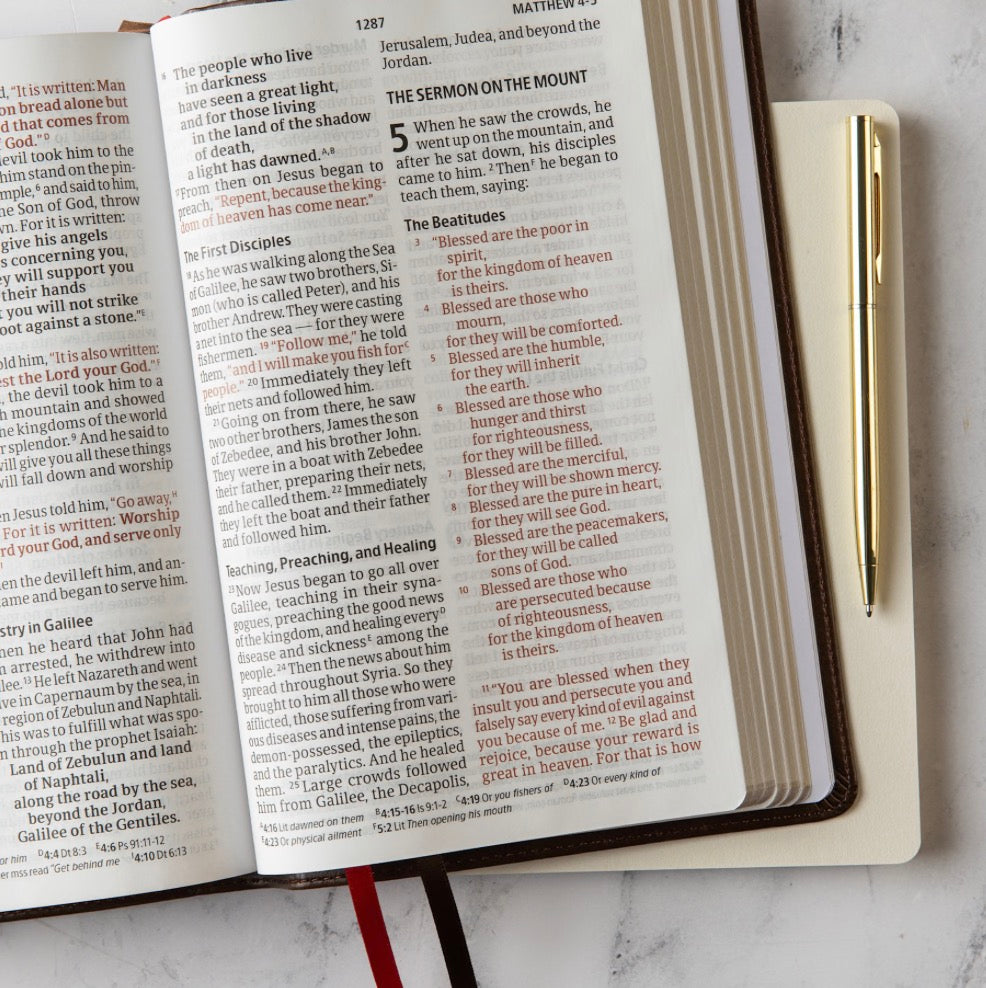 d, “It is written: Man
on bread alone but
d that comes from
God.”D
devil took him to the
him stand on the pin-
mple,6 and said to him,
he Son of God, throw
wn. For it is written:
give his angels
s concerning you,
ey will support you
their hands
t you will not strike
oot against a stone.”E
old him, “It is also written:
est the Lord your God.”F
, the devil took him to a
h mountain and showed
he kingdoms of the world
r splendor.9 And he said to
will give you all these things
will fall down and worship
en Jesus told him, “Go away,H
For it is written: Worship
rd your God, and serve only
en the devil left him, and an-
ame and began to serve him.
stry in Galilee
hen he heard that John had
n arrested, he withdrew into
lee.13 He left Nazareth and went
ve in Capernaum by the sea, in
region of Zebulun and Naphtali.
his was to fulfill what was spo-
n through the prophet Isaiah:
Land of Zebulun and land
of Naphtali,
along the road by the sea,
beyond the Jordan,
Galilee of the Gentiles.
or him D4:4 Dt 8:3 E4:6 Ps 91:11-12
er mss read “Get behind me 4:10 Dt 6:13
1287
MATTHEW 4-5
16 The people who live
in darkness
have seen a great light,
and for those living
in the land of the shadow
of death,
a light has dawned.A,B
17From then on Jesus began to
preach, “Repent, because the king-
dom of heaven has come near.”
The First Disciples
18As he was walking along the Sea
of Galilee, he saw two brothers, Si-
mon (who is called Peter), and his
brother Andrew. They were casting
a net into the sea — for they were
fishermen. 19 “Follow me,” he told
them, “and I will make you fish forC
people.” 20 Immediately they left
their nets and followed him.
21Going on from there, he saw
two other brothers, James the son
of Zebedee, and his brother John.
They were in a boat with Zebedee
their father, preparing their nets,
and he called them. 22 Immediately
they left the boat and their father
and followed him.
Teaching, Preaching, and Healing
23Now Jesus began to go all over
Galilee, teaching in their syna-
gogues, preaching the good news
of the kingdom, and healing everyD
disease and sicknessE among the
people. 24 Then the news about him
spread throughout Syria. So they
brought to him all those who were
afflicted, those suffering from vari-
ous diseases and intense pains, the
demon-possessed, the epileptics,
and the paralytics. And he healed
them. 25 Large crowds followed
him from Galilee, the Decapolis,
Jerusalem, Judea, and beyond the
Jordan.
THE SERMON ON THE MOUNT
5 When he saw the crowds, he
went up on the mountain, and
after he sat down, his disciples
came to him. 2 ThenF he began to
teach them, saying:
The Beatitudes
3 “Blessed are the poor in
spirit,
for the kingdom of heaven
is theirs.
4 Blessed are those who
mourn,
for they will be comforted.
5 Blessed are the humble,
for they will inherit
the earth.
6 Blessed are those who
hunger and thirst
for righteousness,
for they will be filled.
7 Blessed are the merciful,
for they will be shown mercy.
8 Blessed are the pure in heart,
for they will see God.
9 Blessed are the peacemakers,
for they will be called
sons of God.
10 Blessed are those who
are persecuted because
of righteousness,
for the kingdom of heaven
is theirs.
11 “You are blessed when they
insult you and persecute you and
falsely say every kind of evil against
you because of me. 12 Be glad and
rejoice, because your reward is
great in heaven. For that is how
A4:16 Lit dawned on them B4:15-16 Is 9:1-2 C4:19 Or you fishers of D4:23 Or every kind of
E4:23 Or physical ailment F5:2 Lit Then opening his mouth